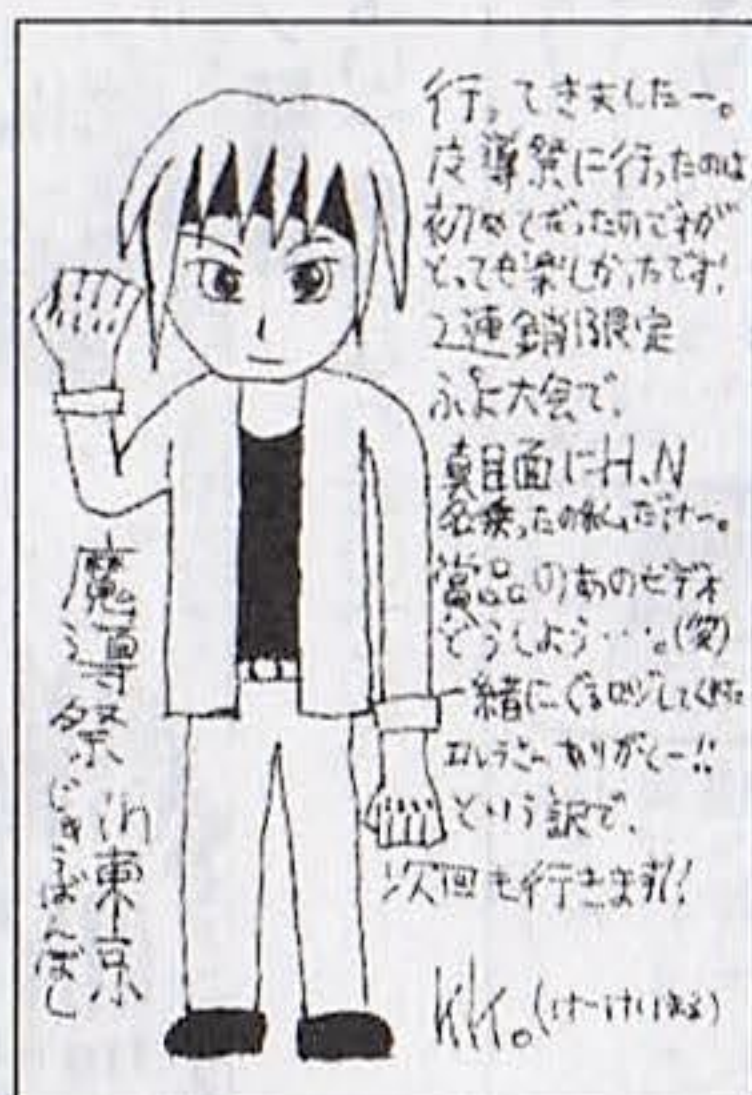 行ってきましたー。
魔導祭に行ったのは
初めてだったのですが
とっても楽しかったです!
2連鎖限定
ぷよ大会で、
真面目にH.N
名乗ったの私だけー。
賞品のあのビデオ
どうしよう…。(笑)
一緒にぐるロジしてくれた
ありがとー!!
という訳で、
次回も行きます!!
KK。
魔導祭 in 東京